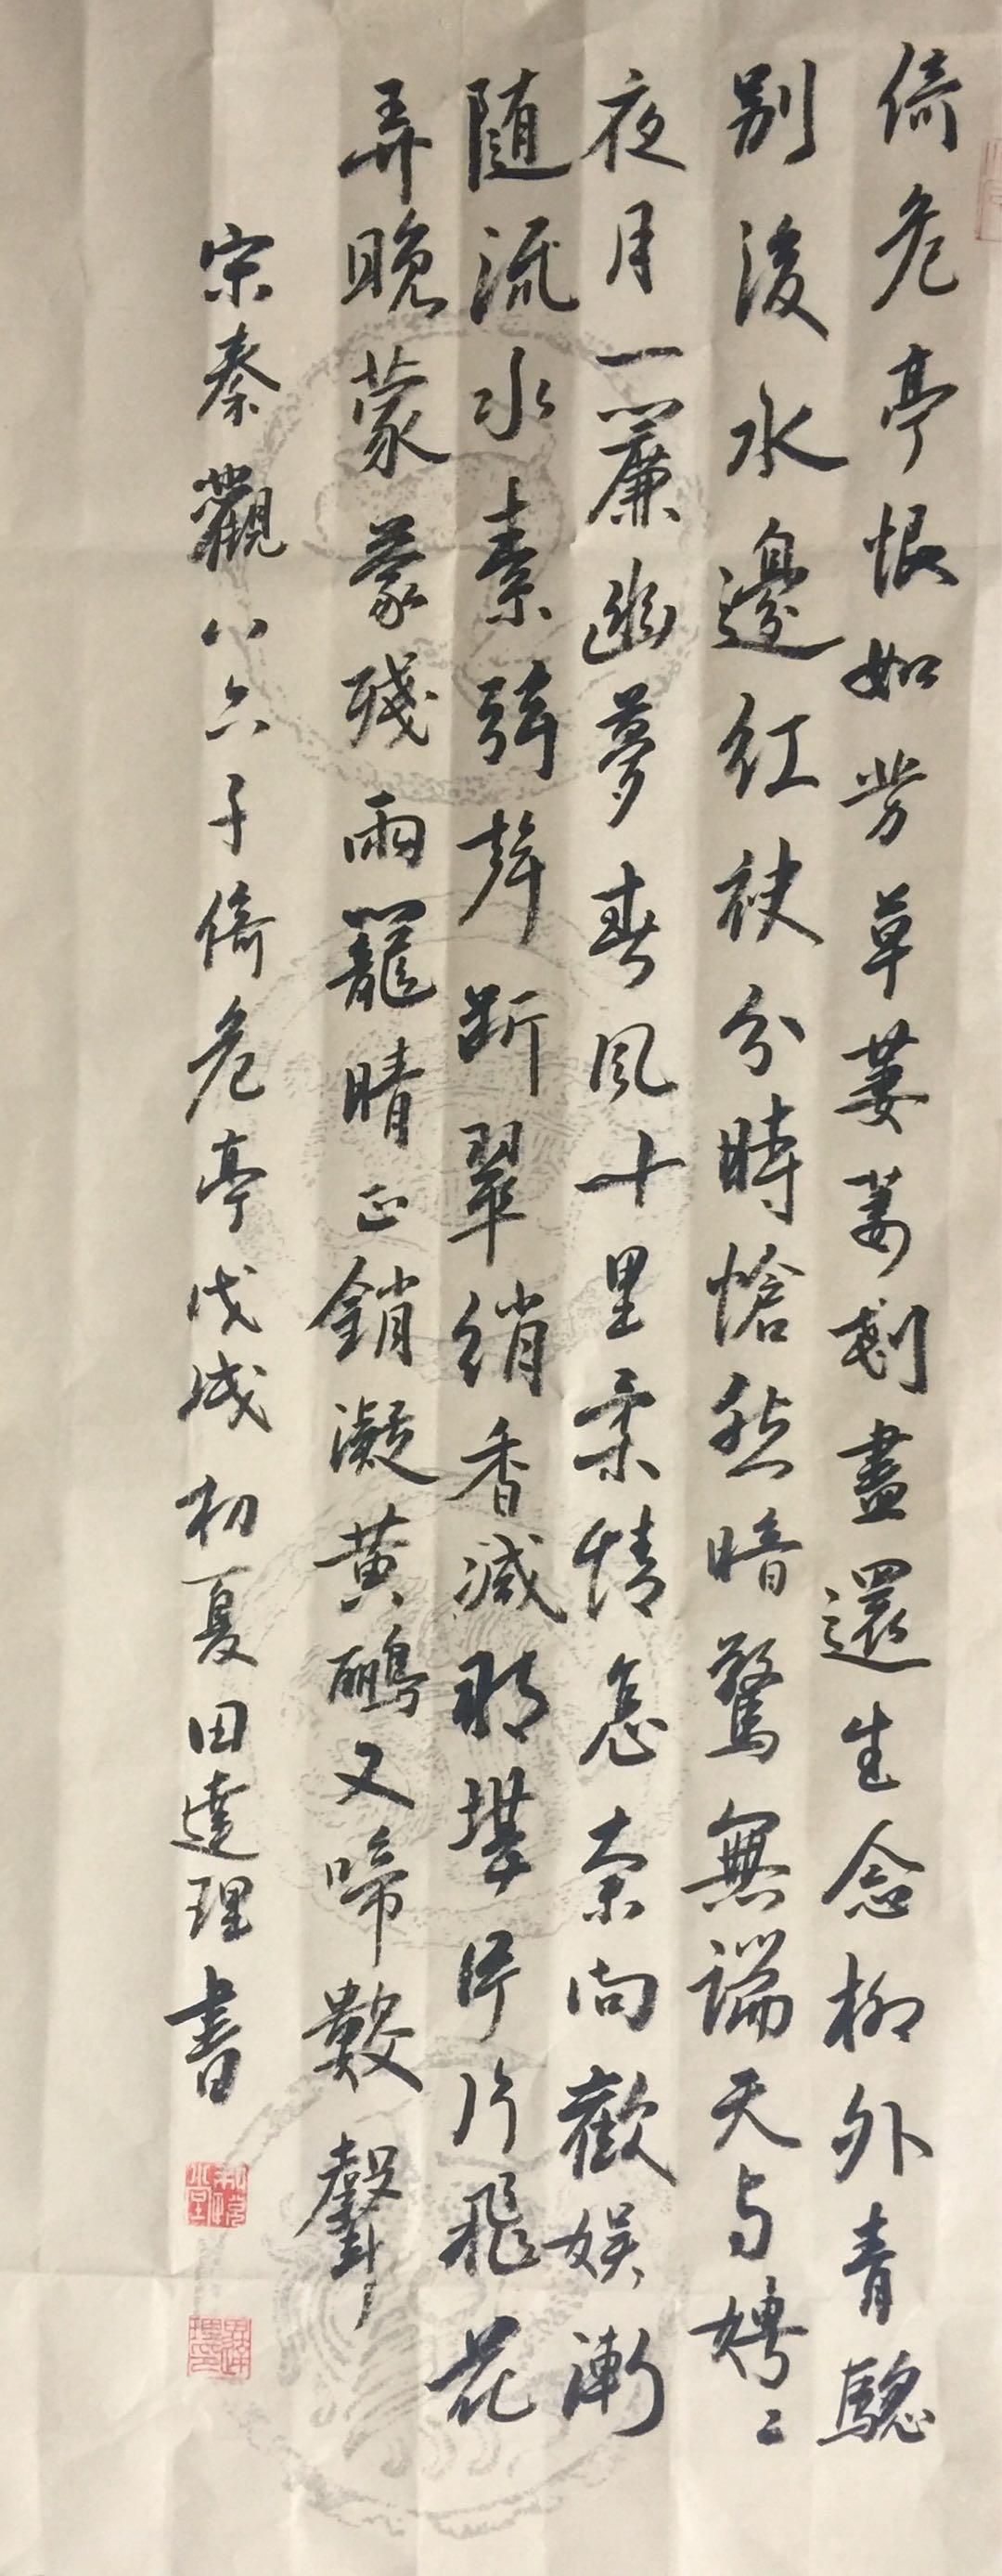 倚危亭恨如芳草萋萋剗盡還生念柳外青驄
別後水邊紅袂分時愴然暗驚無端天与娉〻
夜月一簾幽夢春風十里柔情怎奈向歡娛漸
隨流水素弦聲斷翠綃香減那堪片片飛花
弄晚蒙蒙殘雨籠晴正銷凝黃鸝又啼數聲
宋秦觀八六子倚危亭戊戌初夏田達理書